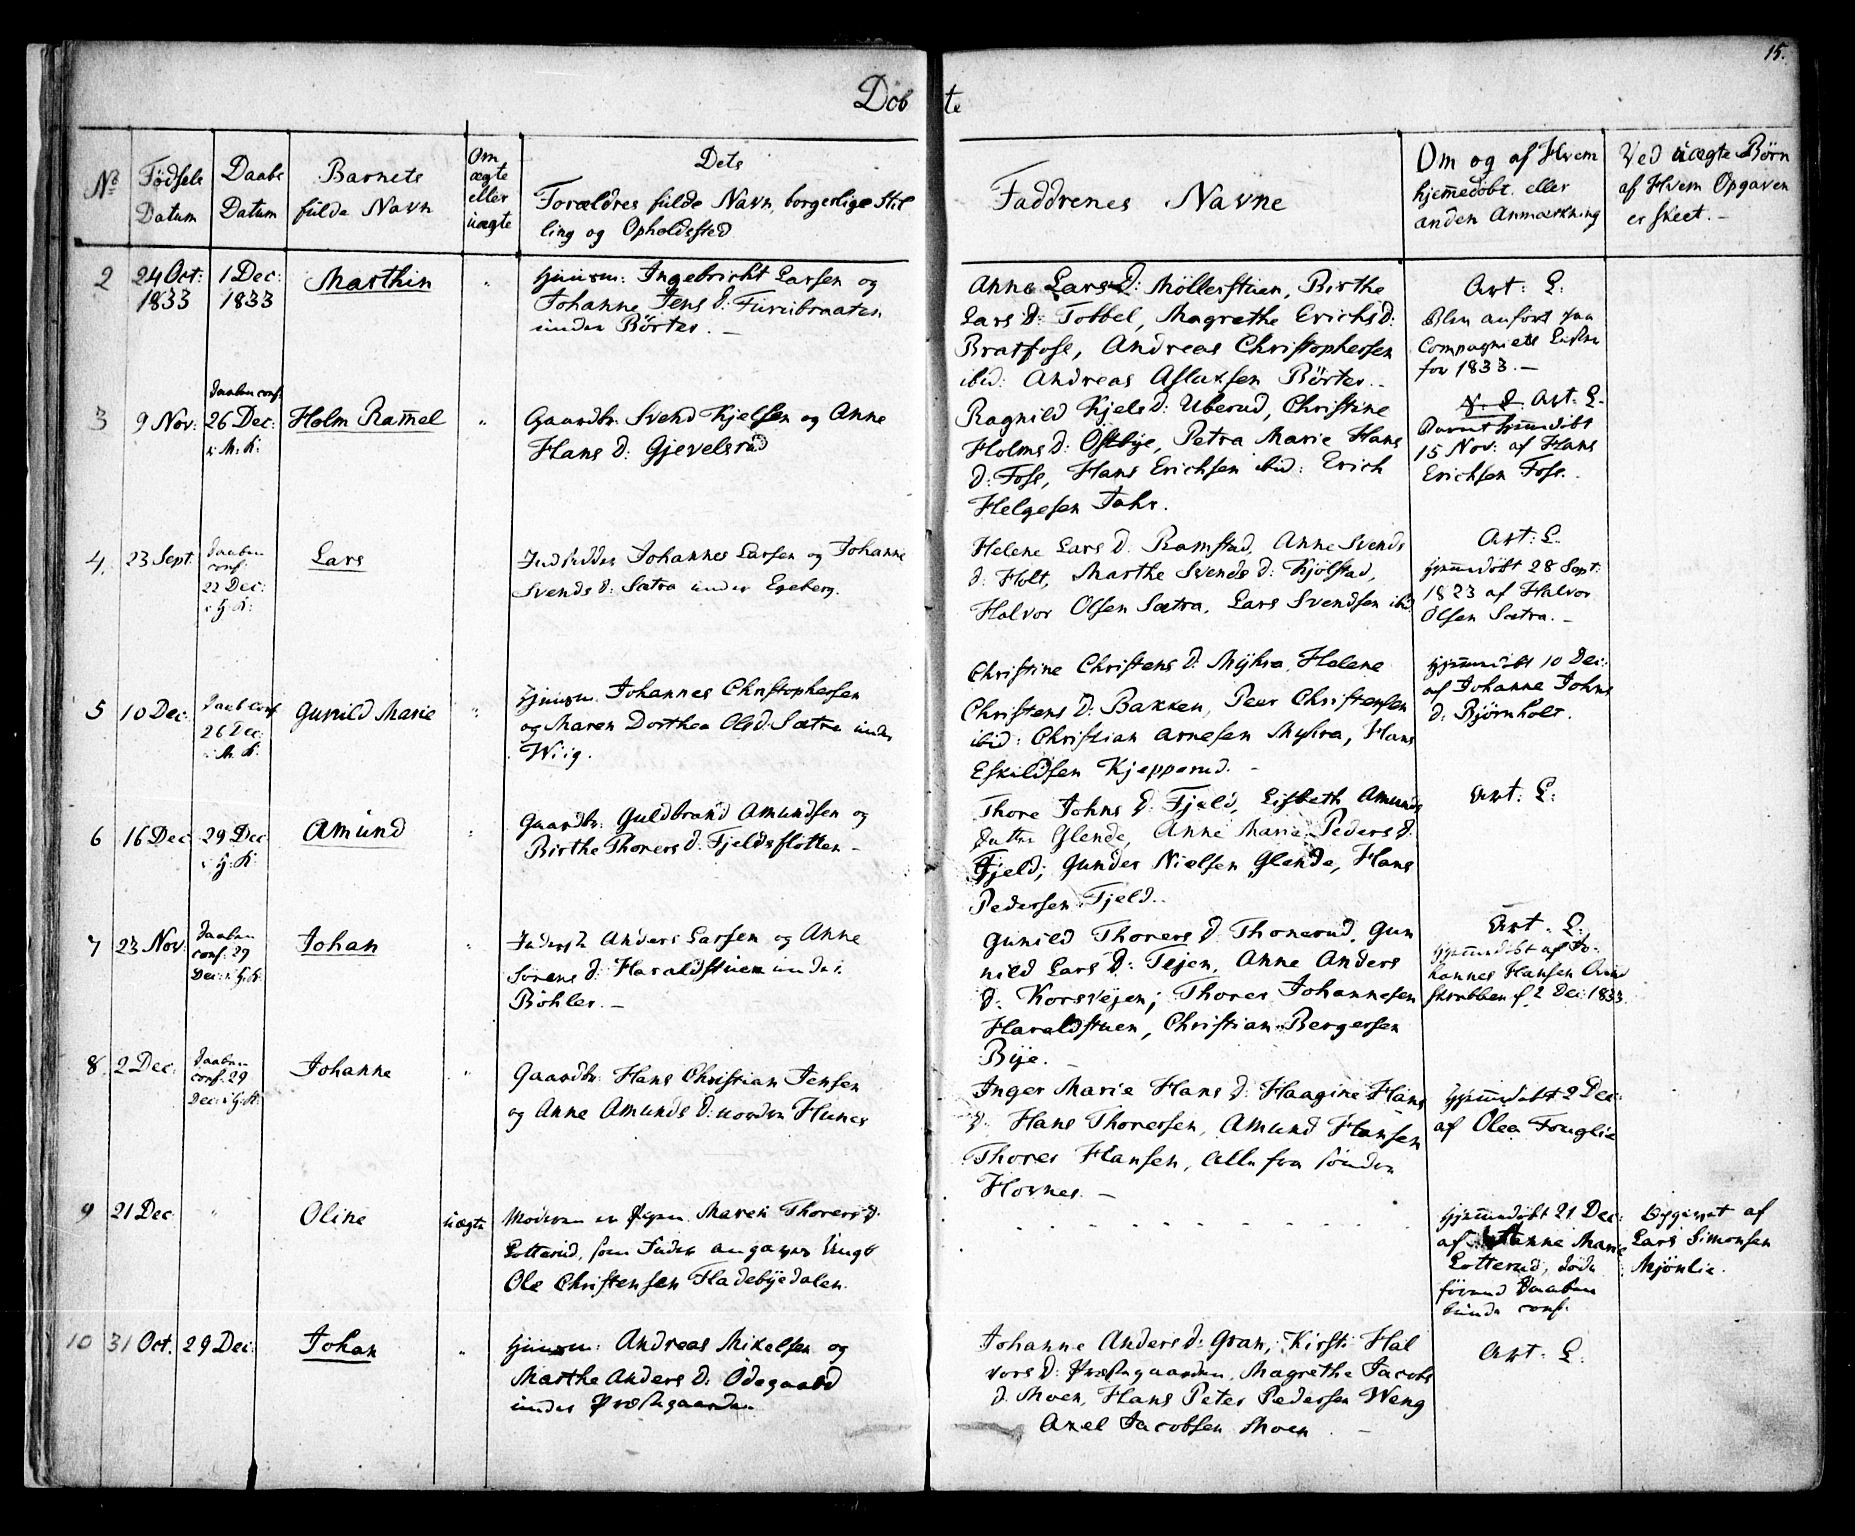 15.
Døbte
No
Fødsels Datum
Daabs Datum
Barnets fulde Navn
Om ægte eller uægte
Dets
Forældres fulde Navn, borgerlige Stil
ling og Opholdssted
Faddrenes Navne
Om og af Hvem
hjemmedøbt eller
anden Anmærkning
Ved uægte Børn
af Hvem Opgaven
er skeet. –
2
24 Oct:
1833
1 Dec:
1833
Marthin
"
Huusm: Ingebricht Larsen og
Johanne Jens D:
under Börter. –
Anne Lars D: Möllerstuen, Birthe
Lars D: Tobbel, Magrethe Erichs D:
Bratfoss, Andreas Christophersen
ibid: Andreas Aslaksen Börter. –
Art: L.
Blev anført paa
Compagniets Liste
for 1833. –
3
9 Nov:
Daaben conf.
26 Dec:
i M. K:
Holm Ramel
"
Gaardbr: Svend Kjelsen og Anne
Hans D: Gjevelsrud
Ragnild Kjels D: Uberud, Christine
Holms D: Ostbye, Petra Marie Hans
D: Foss, Hans Erichsen ibid: Erich
Helgesen Jahr.
Art: L.
Barnet hjemmedöbt
15 Nov: af Hans
Erichsen Foss.
4.
23 Sept
Daaben
conf:
22 Dec:
i H: K:
Lars
Inderster Johannes Larsen og Johanne
Svends D: Sætra under Egeberg.
Helene Lars D. Ramstad, Anne Svends
D: Holt, Marthe Svends D: Kjölstad,
Halvor Olsen Sætra, Lars Svendsen ibid
Art: L.
hjemmedöbt 28 Sept:
1823 af Halvor
Olsen Sætra. –
5
10 Dec:
Daab conf
26 Dec:
i M. K:
Gunild Marie
"
Huusm. Johannes Christophersen
og Maren Dorthea Ols D. Sætra under
Wiig.
Christine Christens D: Myhra, Helene
Christens D: Bakken, Peter Christensen
ibid: Christian Arnesen Myhra, Hans
Eskildsen Kjepperud. –
hjemmedöbt 10 Dec:
af Johanne Johns
D: Björnholt.
6
16 Dec
29 Dec
i H: K:
Amund
"
Gaardbr: Guldbrand Amundsen og
Birthe Thorers D: Fjeldsflotten –
Thore Johns D: Fjeld, Lisbeth Amunds
datter Glende, Anne Marie Peders D:
Fjeld, Gunder Nielsen Glende, Hans
Pedersen Fjeld.
Art: L:
7
23 Nov:
Daaben
conf: 29
Dec: i H: K:
Johan
"
Inderst: Anders Larsen og Anne
Sörens D: Haraldstuen under
Böhler. –
Gunild Thorers D: Thonerud, Gun
nild Lars D: Tejen, Anne Anders
D: Korsvejen; Thorer Johannesen
Haraldstuen, Christian Bergersen
Bye. –
Art. L:
hjemmedöbt af Jo-
hannes Hansen
2 Dec: 1833.
8.
2 Dec:
Daaben
conf: 29
Dec: i H: K:
Johanne
"
Gaardbr: Hans Christian Jensen
og Anne Amunds D: nordre Hunes
Inger Marie Hans D: Haagine Hans
D: Hans Thoresen, Amund Hansen
Thorer Hansen, alle fra söndre
Hovnes. –
hjemmedöbt 2 Dec:
af Olea Fouglie
9
21 Dec
"
Oline
uægte
Moderen er Pigen Maren Thorers D:
Lotterud, som Fader angaves Ungk
Ole Christensen Fladebyedalen.
- - - - - - - - - -
hjemmedöbt 21 Dec:
af Anne Marie
Lotterud, döde
forend Daaben
kunde conf:
Opgivet af
Lars Simonsen
Mjönlie.
10
31 Oct.
29 Dec:
Johan
"
Huusm: Andreas Mikelsen og
Marthe Anders D: Ödegaard
under Præstegaarden
Johanne Anders D: Gran, Kirsti Hal
vors D: Præstegaarden, Magrethe Jacobs
D: Moen, Hans Peter Pedersen Weng
Axel Jacobsen Moen. –
Art. L: